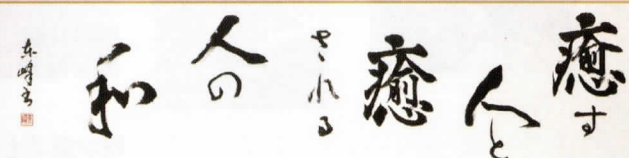 癒す
人と
癒
される
人の
和
东峰书